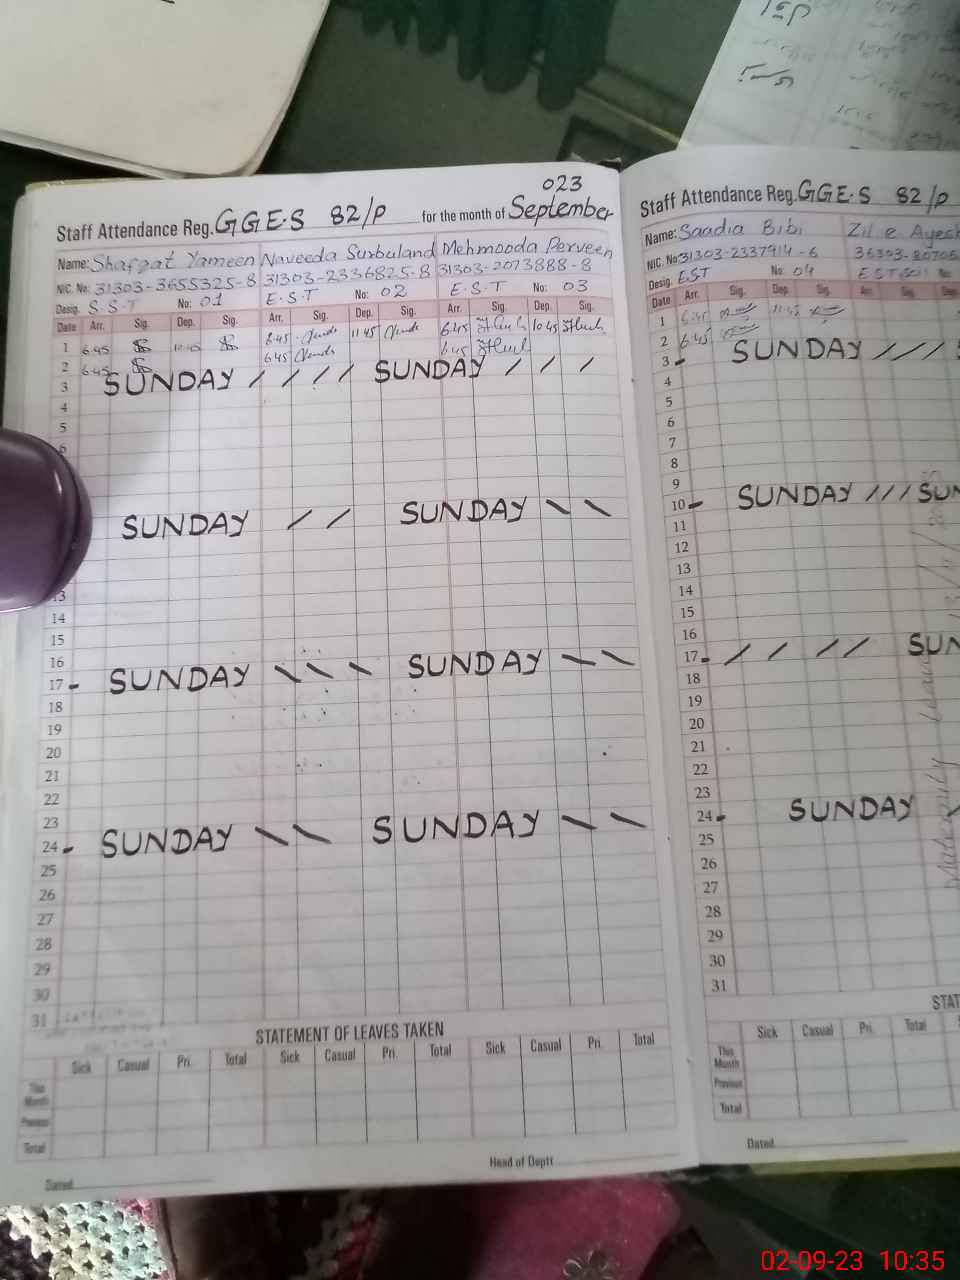 023
Staff Attendance Reg. GGE.S 82/P for the month of September
Name: Shafqat Yameen Naveeda Surbuland Mehmooda Perveen
NIC. No: 31303-3655325-8 31303-2336825-8 31303-2073888-8
Desig. S.S.T No: 01 E.S.T No: 02 E.S.T No: 03
Date Arr. Sig. Dep. Sig. Arr. Sig. Dep. Sig. Arr. Sig. Dep. Sig.
1 6.45 8.45 11.45 6.45 10.45
2 6.45 6.45 6.45
3 SUNDAY / / / / SUNDAY / / /
4
5
6
SUNDAY / / SUNDAY \ \
13
14
15
16
17 - SUNDAY \ \ \ SUNDAY \ \
18
19
20
21
22
23
24 - SUNDAY \ \ SUNDAY \ \
25
26
27
28
29
30
31
STATEMENT OF LEAVES TAKEN
Sick Casual Pri. Total Sick Casual Pri. Total Sick Casual Pri. Total
This Month
Previous
Total
Dated
Head of Deptt
Staff Attendance Reg. GGE.S 82/P
Name: Saadia Bibi Zil e
NIC. No: 31303-2337914-6
Desig. EST No: 04 No
Date Arr. Sig. Dep. Sig. Arr. Sig.
1 6.45 11.45
2 6.45
3 - SUNDAY / / /
4
5
6
7
8
9
10 - SUNDAY / / / SUN
11
12
13
14
15
16
17 - / / / / SUN
18
19
20
21
22
23
24 - SUNDAY
25
26
27
28
29
30
31
Maternity Leave
STAT
Sick Casual Pri. Total
This Month
Previous
Total
Dated
02-09-23 10:35